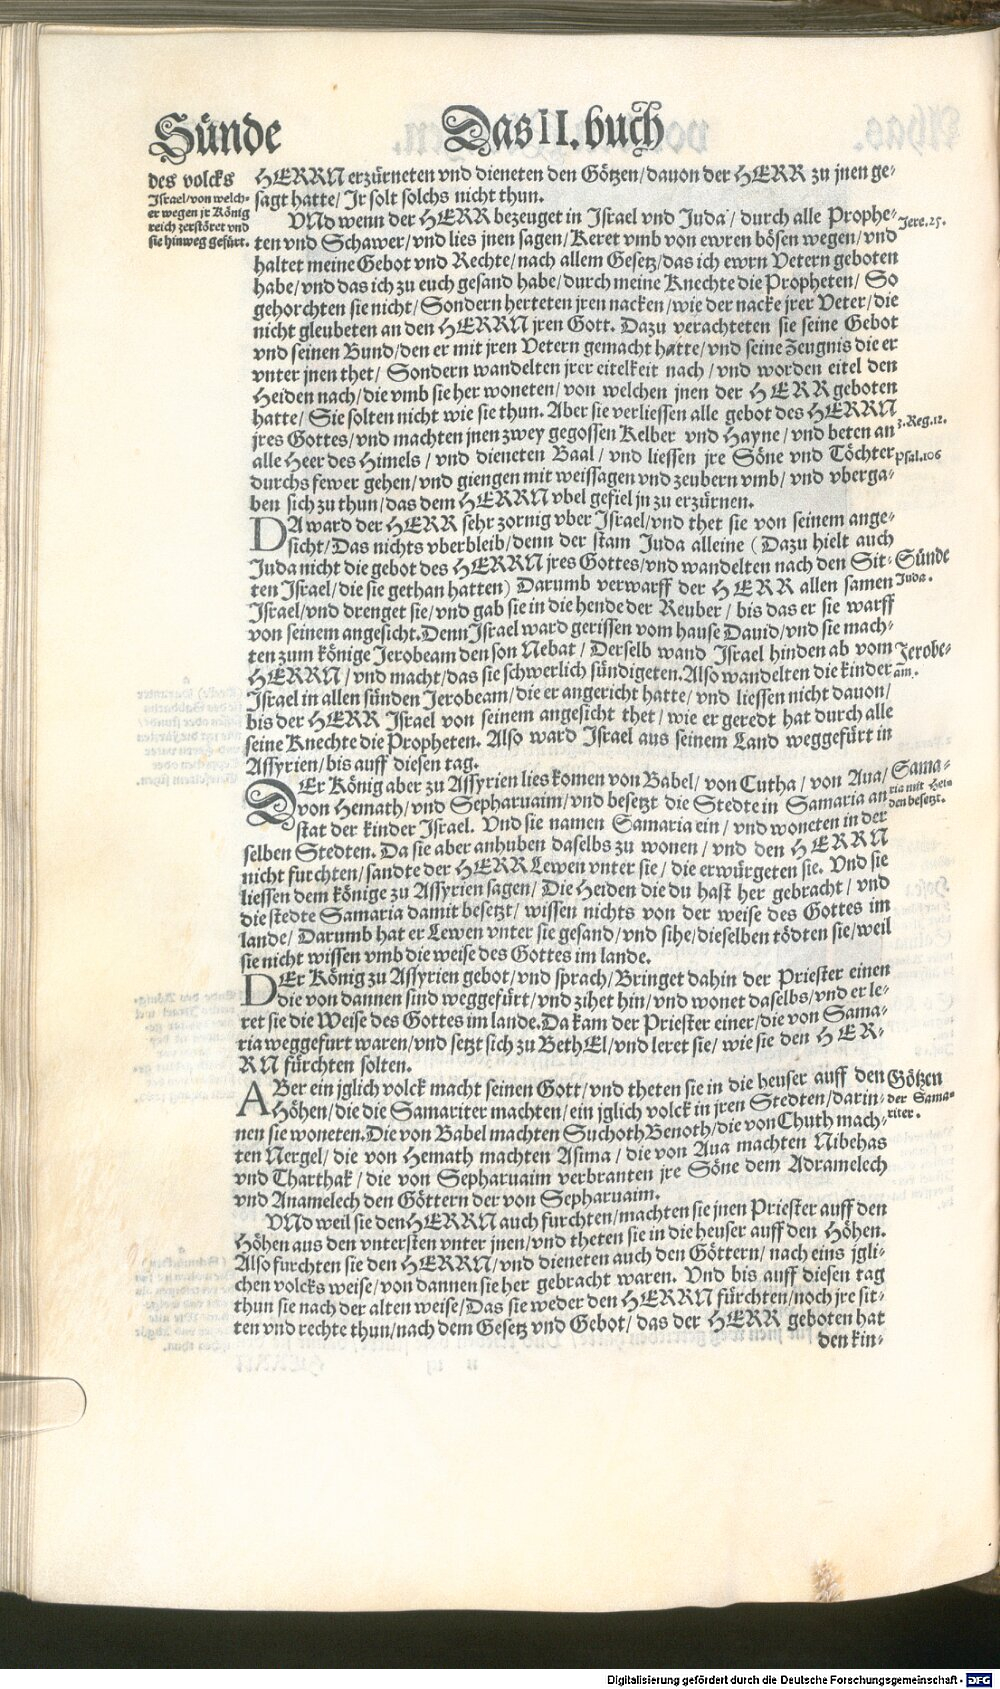 Sünde
Das II. buch
des volcks
Jsrael/von welch-
er wegen jr König
reich zerstöret vnd
sie hinweg gefürt.
HERRN erzürneten vnd dieneten den Götzen/dauon der HERR zu jnen ge-
sagt hatte/ Jr solt solchs nicht thun.
VNd wenn der HERR bezeuget in Jsrael vnd Juda/ durch alle Prophe-
Jere. 25.
ten vnd Schawer/vnd lies jnen sagen/Keret vmb von ewren bösen wegen/vnd
haltet meine Gebot vnd Rechte/nach allem Gesetz/das ich ewrn Vetern geboten
habe/vnd das ich zu euch gesand habe/durch meine Knechte die Propheten/ So
gehorchten sie nicht/ Sondern herteten jren nacken/wie der nacke jrer Veter/die
nicht gleubeten an den HERRN jren Gott. Dazu verachteten sie seine Gebot
vnd seinen Bund/den er mit jren Vetern gemacht hatte/vnd seine Zeugnis die er
vnter jnen thet/ Sondern wandelten jrer eitelkeit nach/vnd worden eitel den
Heiden nach/die vmb sie her woneten/von welchen jnen der HERR geboten
hatte/ Sie solten nicht wie sie thun. Aber sie verliessen alle gebot des HERRN
3.Reg.12.
jres Gottes/vnd machten jnen zwey gegossen Kelber vnd Hayne/vnd beten an
alle Heer des Himels/ vnd dieneten Baal/ vnd liessen jre Söne vnd Töchter
Psal.106
durchs fewer gehen/vnd giengen mit weissagen vnd zeubern vmb/ vnd vberga-
ben sich zu thun/das dem HERRN vbel gefiel jn zu erzürnen.
DA ward der HERR sehr zornig vber Jsrael/vnd thet sie von seinem ange-
sicht/Das nichts vberbleib/denn der stam Juda alleine (Dazu hielt auch
Juda nicht die gebot des HERRN jres Gottes/vnd wandelten nach den Sit-
Sünde
Juda.
ten Jsrael/die sie gethan hatten) Darumb verwarff der HERR allen samen
Jsrael/vnd drenget sie/vnd gab sie in die hende der Reuber/ bis das er sie warff
von seinem angesicht. Denn Jsrael ward gerissen vom hause Dauid/vnd sie mach-
ten zum könige Jerobeam den son Nebat/ Derselb wand Jsrael hinden ab vom
Jerobe-
am.
HERRN/vnd macht/das sie schwerlich sündigeten. Also wandelten die kinder
Jsrael in allen sünden Jerobeam/die er angericht hatte/vnd liessen nicht dauon/
bis der HERR Jsrael von seinem angesicht thet/ wie er geredt hat durch alle
seine Knechte die Propheten. Also ward Jsrael aus seinem Land weggefürt in
Assyrien/bis auff diesen tag.
DEr König aber zu Assyrien lies komen von Babel/von Cutha/ von Aua/
Sama-
ria mit Hei-
den besetzt.
von Hemath/vnd Sepharuaim/vnd besetzt die Stedte in Samaria an
stat der kinder Jsrael. Vnd sie namen Samaria ein/ vnd woneten in der
selben Stedten. Da sie aber anhuben daselbs zu wonen/ vnd den HERRN
nicht furchten/sandte der HERR Lewen vnter sie/ die erwürgeten sie. Vnd sie
liessen dem könige zu Assyrien sagen/ Die Heiden die du hast her gebracht/ vnd
die stedte Samaria damit besetzt/ wissen nichts von der weise des Gottes im
lande/ Darumb hat er Lewen vnter sie gesand/vnd sihe/dieselben tödten sie/weil
sie nicht wissen vmb die weise des Gottes im lande.
DEr König zu Assyrien gebot/vnd sprach/Bringet dahin der Priester einen
die von dannen sind weggefürt/vnd zihet hin/vnd wonet daselbs/vnd er le-
ret sie die Weise des Gottes im lande. Da kam der Priester einer/die von Sama-
ria weggefurt waren/vnd setzt sich zu BethEl/vnd leret sie/ wie sie den HER-
RN fürchten solten.
ABer ein jglich volck macht seinen Gott/vnd theten sie in die heuser auff den
Götzen
der Sama-
riter.
Höhen/die die Samariter machten/ein jglich volck in jren Stedten/darin-
nen sie woneten. Die von Babel machten SuchothBenoth/die von Chuth mach-
ten Nergel/die von Hemath machten Asima/ die von Aua machten Nibehas
vnd Tharthak/die von Sepharuaim verbranten jre Söne dem Adramelech
vnd Anamelech den Göttern der von Sepharuaim.
VNd weil sie den HERRN auch furchten/machten sie jnen Priester auff den
Höhen aus den vntersten vnter jnen/vnd theten sie in die heuser auff den Höhen.
Also furchten sie den HERRN/vnd dieneten auch den Göttern/nach eins jgli-
chen volcks weise/von dannen sie her gebracht waren. Vnd bis auff diesen tag
thun sie nach der alten weise/Das sie weder den HERRN fürchten/noch jre sit-
ten vnd rechte thun/nach dem Gesetz vnd Gebot/das der HERR geboten hat
den kin-
Digitalisierung gefördert durch die Deutsche Forschungsgemeinschaft - DFG